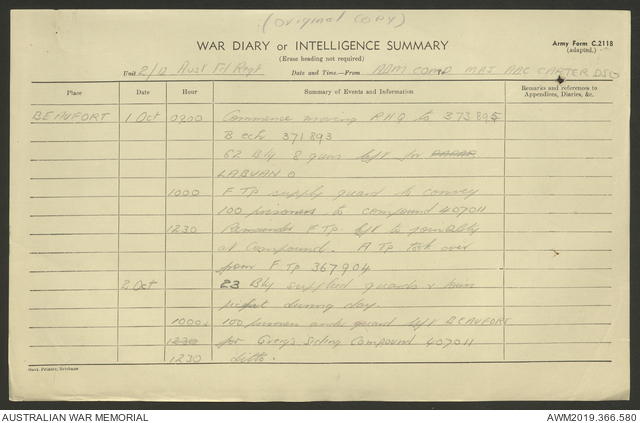 (Original COPY)
WAR DIARY or INTELLIGENCE SUMMARY
Army Form C.2118
(adapted.)
(Erase heading not required)
Unit 2/12 Aust Fd Regt Date and Time—From ADM COMD MAJ ABC CARTER DSO
Place Date Hour Summary of Events and Information Remarks and references to Appendices, Diaries, &c.
BEAUFORT 1 Oct 0900 Commence moving RHQ to 373895
B ech 371893
62 Bty 8 guns left for
LABUAN O
1000 F Tp supply guard to convey
100 prisoners to compound 407011
1230 Remainder F Tp left to
at Compound. A Tp took over
from F Tp 367904
2 Oct 23 Bty supplied guards &
piquet during day.
1000 100 prisoners and guard left BEAUFORT
1230 for Compound 407011
1230 ditto.
Govt. Printer, Brisbane
AUSTRALIAN WAR MEMORIAL
AWM2019.366.580